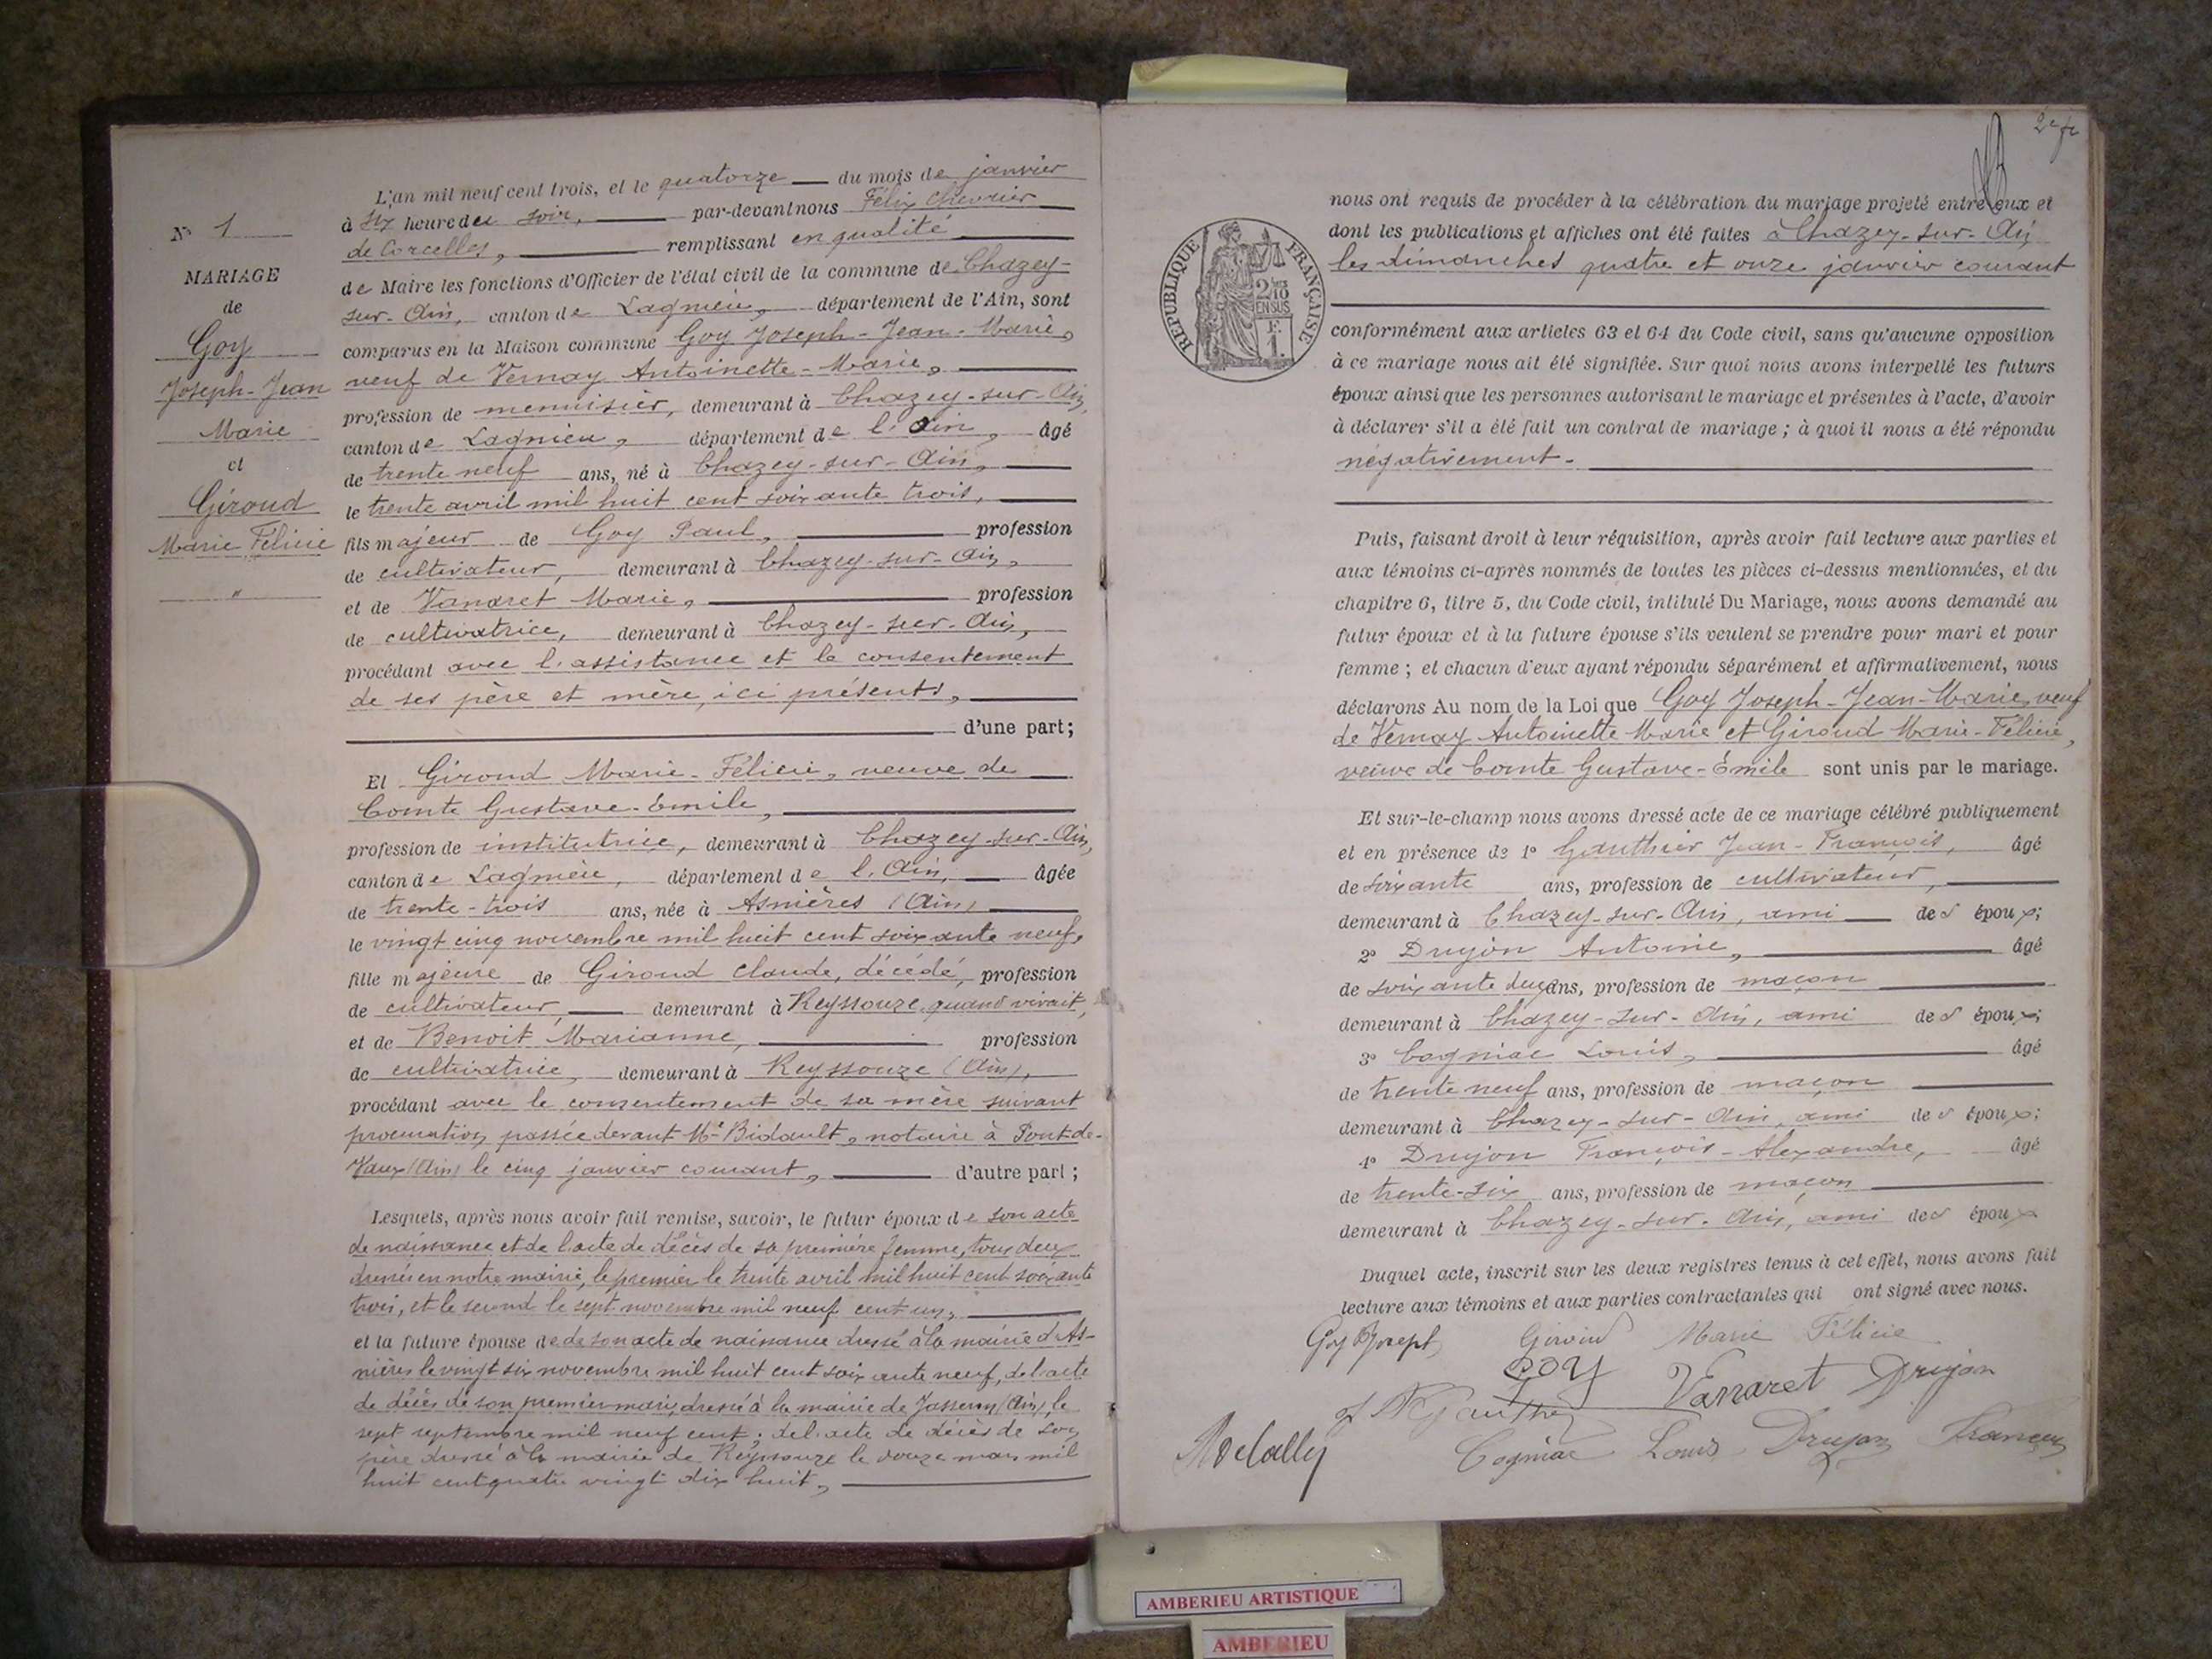 N° 1
MARIAGE
de
Goy
Joseph-Jean
Marie
et
Giroud
Marie Félicie
"
L'an mil neuf cent trois, et le quatorze du mois de janvier
à six heure du soir, par-devant nous Félix Chevrier
de Corcelles, remplissant en qualité
de Maire les fonctions d'Officier de l'état civil de la commune de Chazey-
sur-Ain, canton de Lagnieu, département de l'Ain, sont
comparus en la Maison commune Goy Joseph-Jean-Marie,
veuf de Vernay Antoinette-Marie,
profession de menuisier, demeurant à Chazey-sur-Ain,
canton de Lagnieu, département de l'Ain, âgé
de trente neuf ans, né à Chazey-sur-Ain,
le trente avril mil huit cent soixante trois,
fils majeur de Goy Paul, profession
de cultivateur, demeurant à Chazey-sur-Ain,
et de Vanaret Marie, profession
de cultivatrice, demeurant à Chazey-sur-Ain,
procédant avec l'assistance et le consentement
de ses père et mère, ici présents,
d'une part;
Et Giroud Marie-Félicie, veuve de
Comte Gustave-Emile,
profession de institutrice, demeurant à Chazey-sur-Ain,
canton de Lagnieu, département de l'Ain, âgée
de trente-trois ans, née à Asnières (Ain)
le vingt cinq novembre mil huit cent soixante neuf,
fille majeure de Giroud Claude, décédé, profession
de cultivateur, demeurant à Reyssouze, quand vivait,
et de Benoit Marianne, profession
de cultivatrice, demeurant à Reyssouze (Ain),
procédant avec le consentement de sa mère suivant
procuration passée devant Me Bidault, notaire à Pont-de-
Vaux (Ain) le cinq janvier courant, d'autre part;
Lesquels, après nous avoir fait remise, savoir, le futur époux de son acte
de naissance et de l'acte de décès de sa première femme, tous deux
dressés en notre mairie, le premier le trente avril mil huit cent soixante
trois, et le second le sept novembre mil neuf cent un,
et la future épouse de de son acte de naissance dressé à la mairie d'As-
nières le vingt six novembre mil huit cent soixante neuf, de l'acte
de décès de son premier mari, dressé à la mairie de Jasseron (Ain), le
sept septembre mil neuf cent; de l'acte de décès de son
père dressé à la mairie de Reyssouze le douze mars mil
huit cent quatre vingt dix huit,
2e f
REPUBLIQUE FRANÇAISE
2/10
EN SUS
F.
1.
nous ont requis de procéder à la célébration du mariage projeté entre eux et
dont les publications et affiches ont été faites à Chazey-sur-Ain
les dimanches quatre et onze janvier courant
conformément aux articles 63 et 64 du Code civil, sans qu'aucune opposition
à ce mariage nous ait été signifiée. Sur quoi nous avons interpellé les futurs
époux ainsi que les personnes autorisant le mariage et présentes à l'acte, d'avoir
à déclarer s'il a été fait un contrat de mariage; à quoi il nous a été répondu
négativement.
Puis, faisant droit à leur réquisition, après avoir fait lecture aux parties et
aux témoins ci-après nommés de toutes les pièces ci-dessus mentionnées, et du
chapitre 6, titre 5, du Code civil, intitulé Du Mariage, nous avons demandé au
futur époux et à la future épouse s'ils veulent se prendre pour mari et pour
femme; et chacun d'eux ayant répondu séparément et affirmativement, nous
déclarons Au nom de la Loi que Goy Joseph-Jean-Marie, veuf
de Vernay Antoinette Marie et Giroud Marie-Félicie,
veuve de Comte Gustave-Émile sont unis par le mariage.
Et sur-le-champ nous avons dressé acte de ce mariage célébré publiquement
et en présence de 1° Gauthier Jean-François, âgé
de soixante ans, profession de cultivateur,
demeurant à Chazey-sur-Ain, ami des époux;
2° Drujon Antoine, âgé
de soixante deux ans, profession de maçon
demeurant à Chazey-sur-Ain, ami des époux;
3° Cogniac Louis, âgé
de trente neuf ans, profession de maçon
demeurant à Chazey-sur-Ain, ami des époux;
4° Drujon François-Alexandre, âgé
de trente-six ans, profession de maçon
demeurant à Chazey-sur-Ain, ami des époux
Duquel acte, inscrit sur les deux registres tenus à cet effet, nous avons fait
lecture aux témoins et aux parties contractantes qui ont signé avec nous.
Goy Joseph Giroud Marie Félicie
GOY Vanaret Drujon
Gauthier
Cogniac Louis Drujon François
AMBERIEU ARTISTIQUE
AMBERIEU